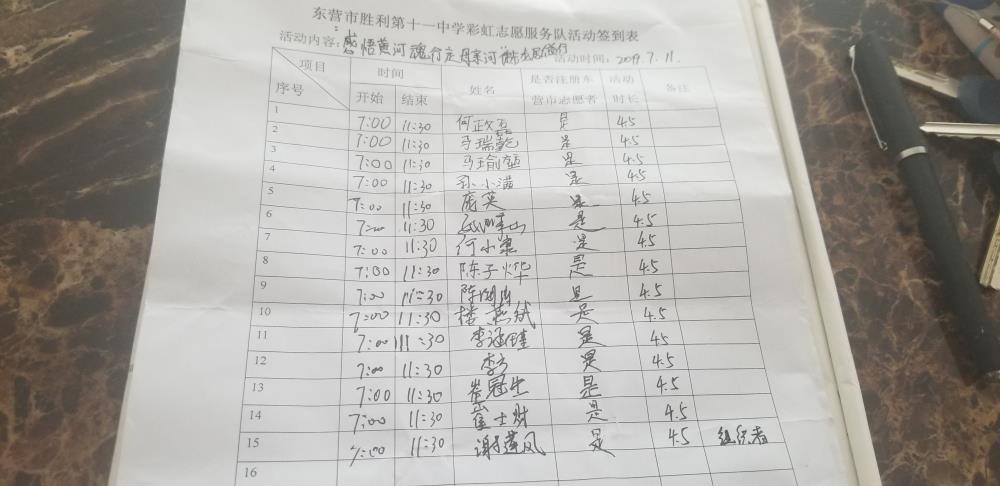 东营市胜利第十一中学彩虹志愿服务队活动签到表
活动内容:感悟黄河魂行走母亲河 活动时间:2019.7.11.
项目 时间 姓名 是否注册东 活动 备注
序号 开始 结束 营市志愿者 时长
1 7:00 11:30 何政磊 是 4.5
2 7:00 11:30 马瑞乾 是 4.5
3 7:00 11:30 马瑜 是 4.5
4 7:00 11:30 孙小满 是 4.5
5 7:00 11:30 庞英 是 4.5
6 7:00 11:30 是 4.5
7 7:00 11:30 何小 是 4.5
8 7:00 11:30 陈子烨 是 4.5
9 7:00 11:30 陈 是 4.5
10 7:00 11:30 楼燕斌 是 4.5
11 7:00 11:30 李涵 是 45
12 7:00 11:30 李 是 4.5
13 7:00 11:30 崔冠生 是 4.5
14 7:00 11:30 崔士财 是 4.5
15 7:00 11:30 谢莲风 是 4.5 组织者
16